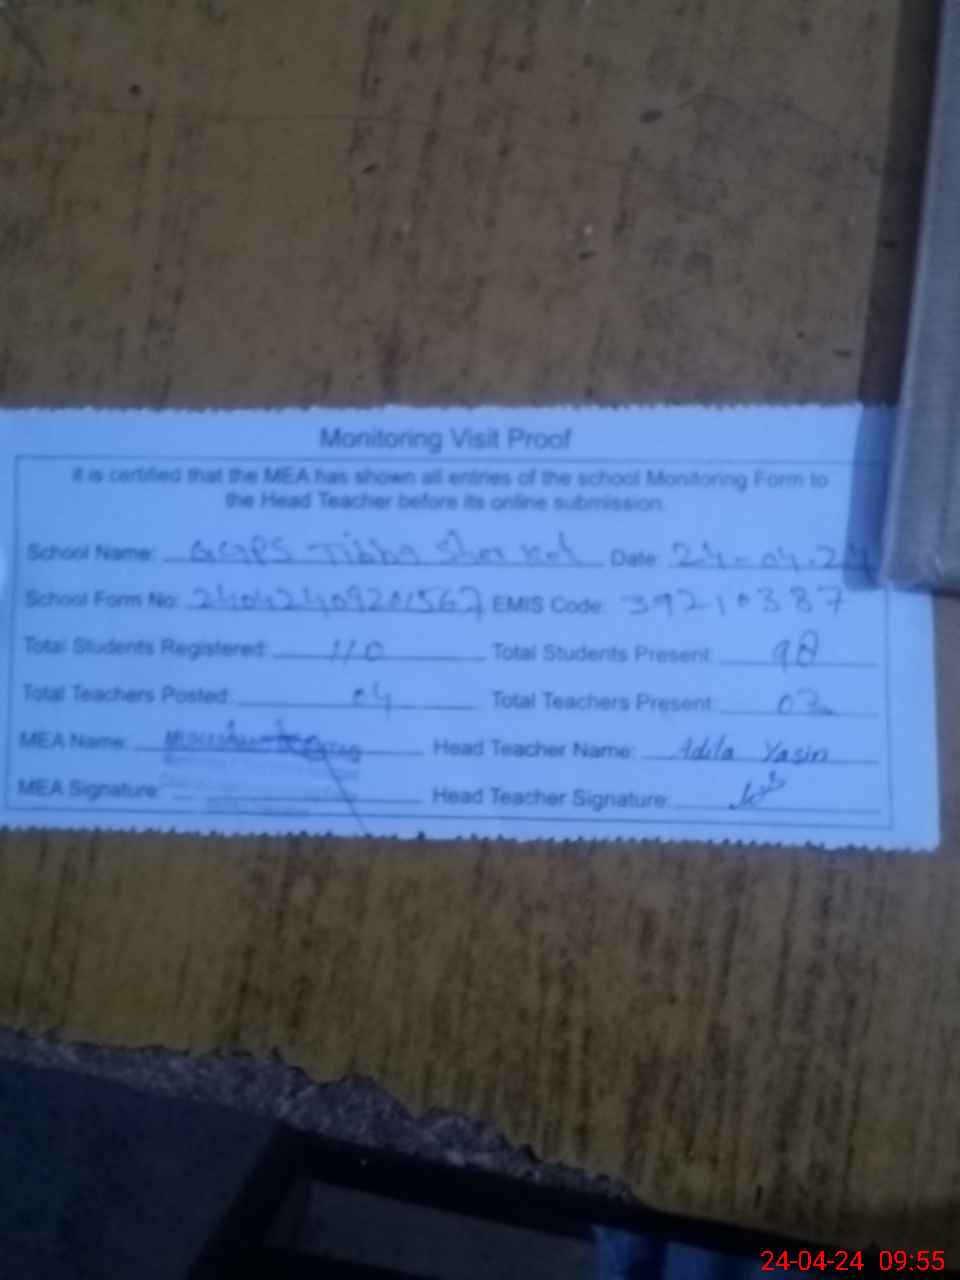 Monitoring Visit Proof
It is certified that the MEA has shown all entries of the school Monitoring Form to
the Head Teacher before its online submission.
School Name: GGPS Tibba Sher Kot Date: 24-04-24
School Form No: 24042409201567 EMIS Code: 39210387
Total Students Registered: 110 Total Students Present: 98
Total Teachers Posted: 04 Total Teachers Present: 03
MEA Name: Head Teacher Name: Adila Yasin
MEA Signature: Head Teacher Signature:
24-04-24 09:55